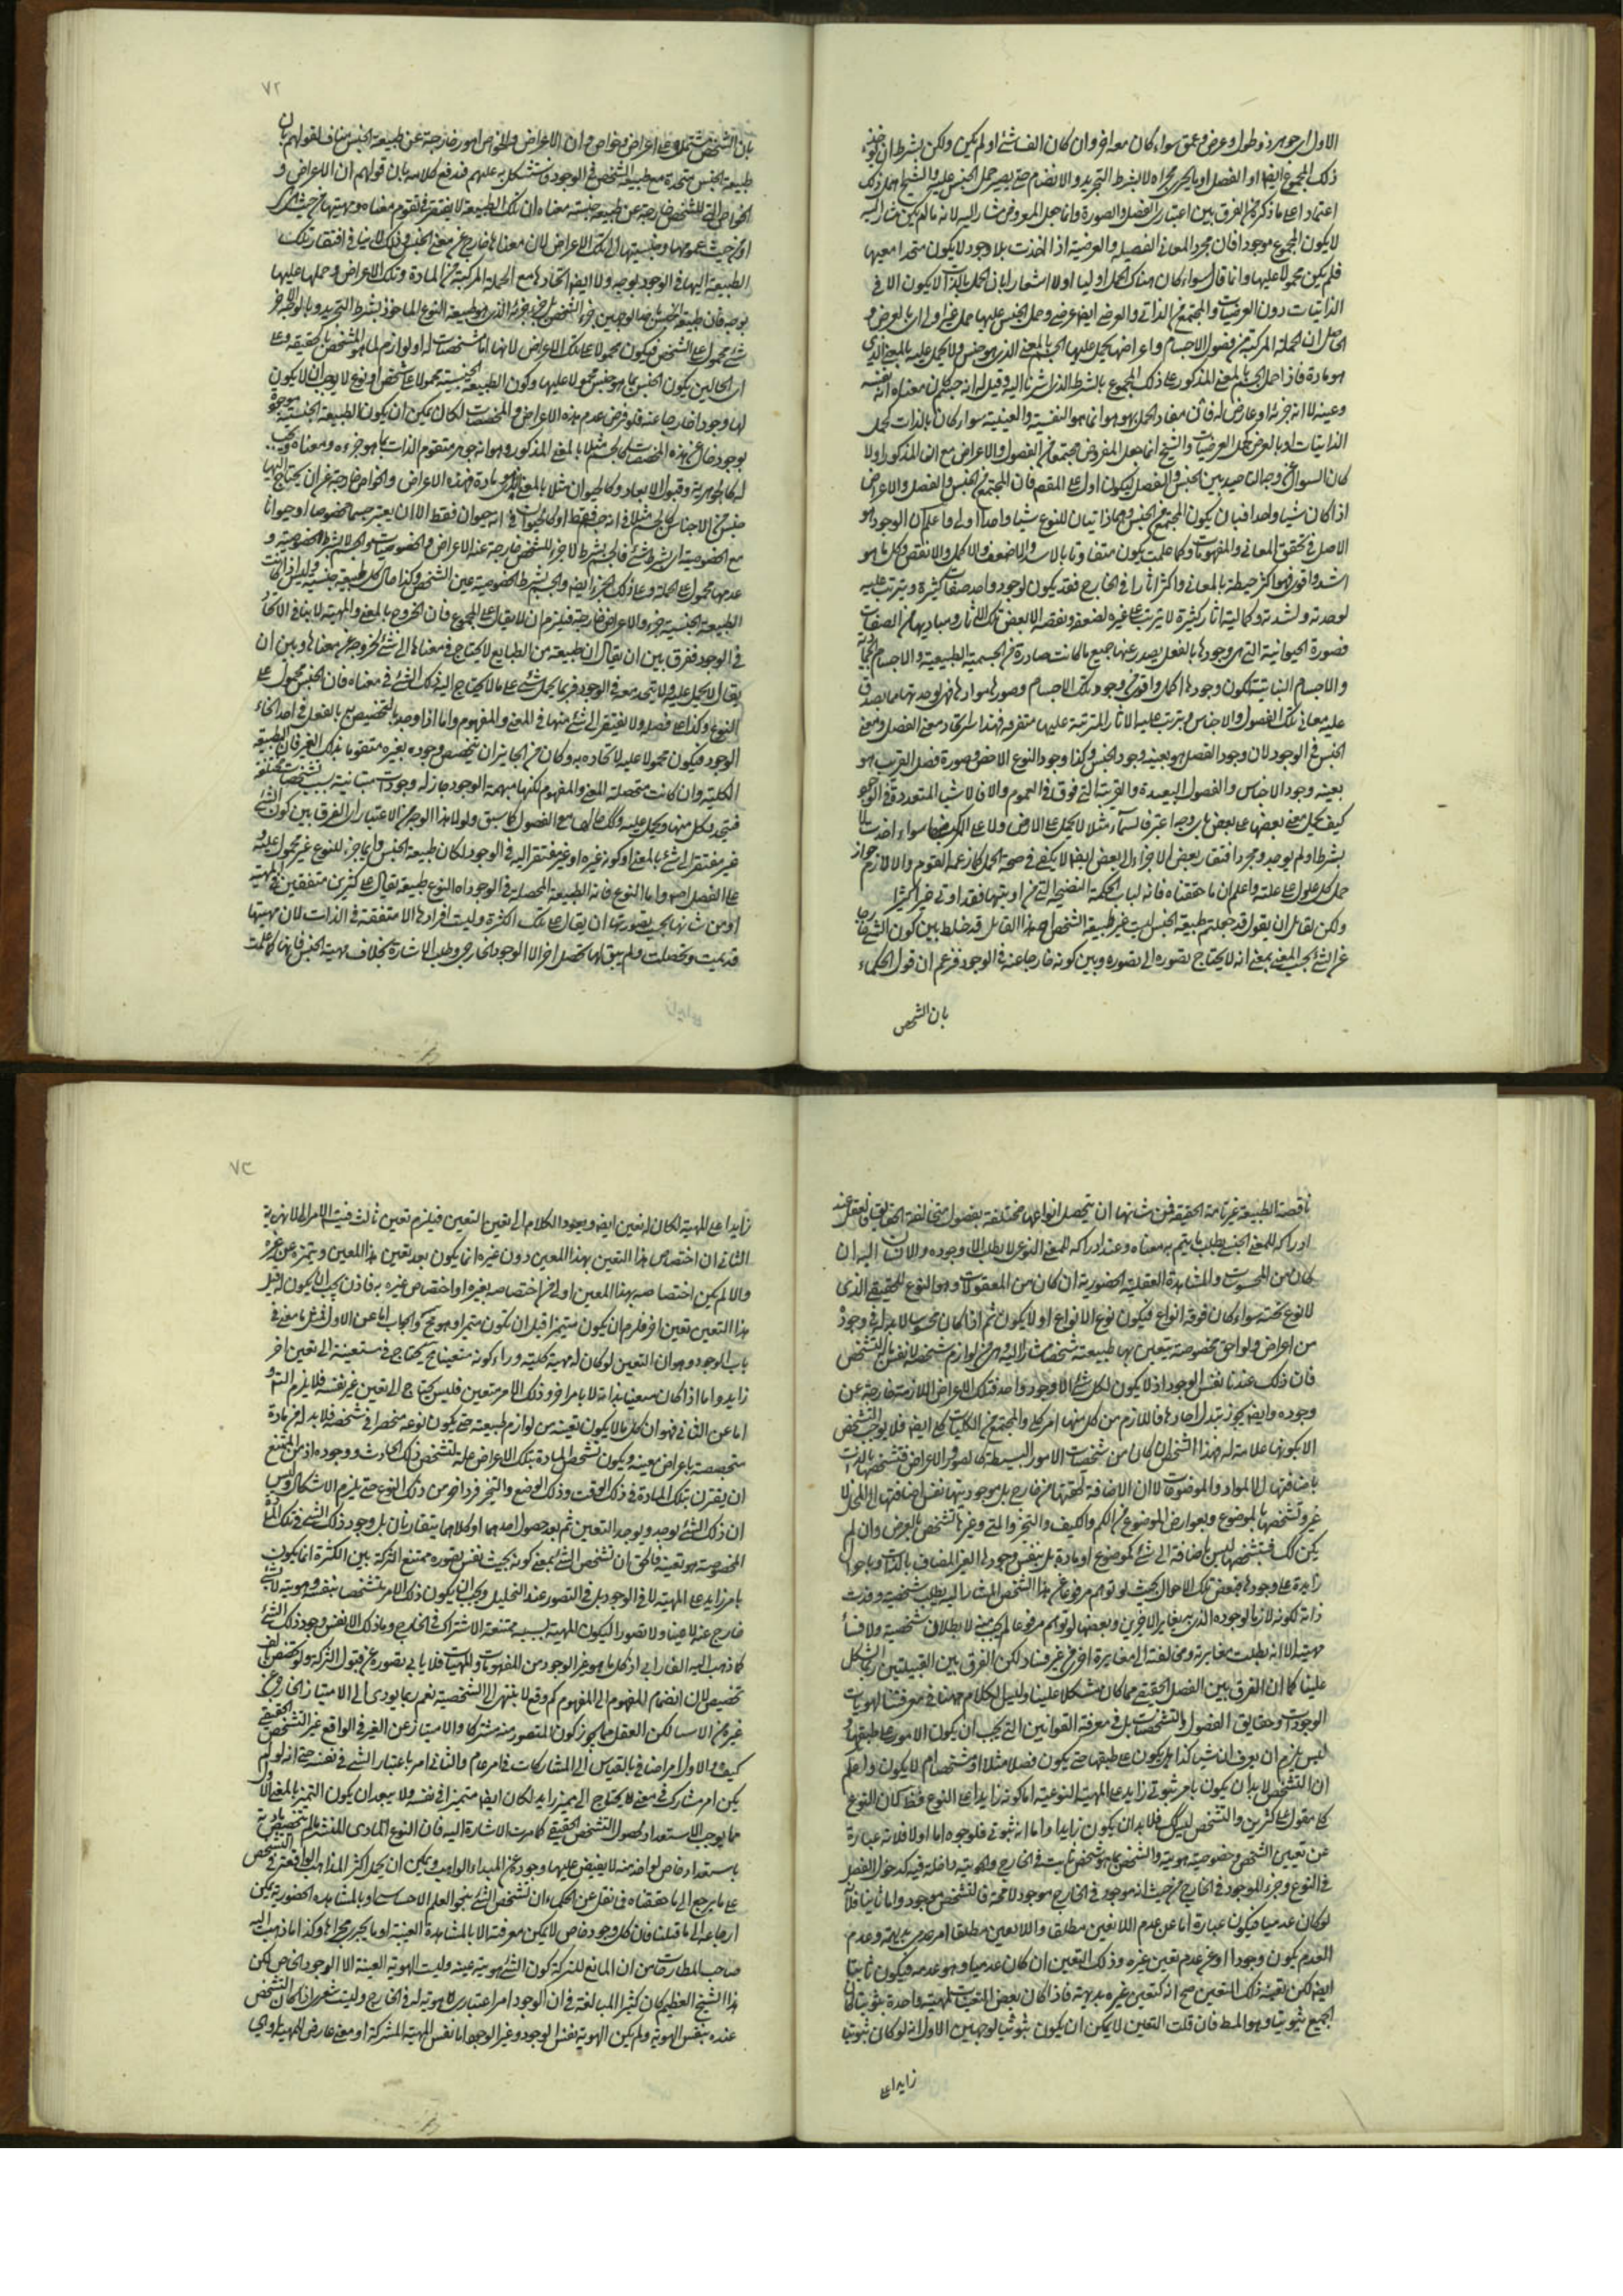 الاول اى جوهر ذو طول وعرض وعمق سواء كان معه اخر وان كان الف شئ او لم يكن ولكن بشرط ان يوخذ
ذلك المجموع ايضا او الفصل او ما يجرى مجراه لا بشرط التجريد والانضمام حتى يصير حمل الجنس عليه والشيخ اهمل ذلك
اعتمادا على ما ذكره من الفرق بين اعتبارى الفصل والصورة وانما جعل المعروض مشارا اليه لانه ما لم يكن مشارا اليه
لا يكون المجموع موجودا فان مجرد المعانى الفصلية والعرضية اذا اخذت بلا وجود لا يكون متحدا معيها
فلم يكن محمولا عليها وانما قال سواء كان هناك الحمل اوليا اولا اشعارا بان الحمل بالذات لا يكون الا فى
الذاتيات دون العرضيات والمجتمع من الذاتى والعرضى ايضا عرضى وحمل الجنس عليها حمل غير اولى اى بالعرض و
الحاصل ان الجملة المركبة من فصول الاجسام واعراضها يحمل عليها الجسم بالمعنى الذى هو جنس ولا يحمل عليه بالمعنى الذى
هو مادة فاذا حمل الجسم بالمعنى المذكور على ذلك المجموع بالشرط الذى اشرنا اليه وقيل له انه جسم كان معناه انه نفسه
وعينه لا انه جزئه او عارض له فان مفاد الحمل بهو هو انما هو النفسية والعينية سواء كان بالذات كحمل
الذاتيات او بالعرض كحمل العرضيات والشيخ انما جعل المفروض مجتمعا من الفصول والاعراض مع ان المذكور اولا
كان السؤال عن وجه الحمل بين الجنس والفصل ليكون ادل على المقصد فان المجتمع من الجنس والفصل والاعراض
اذا كان شيئا واحدا فبان يكون المجتمع من الجنس وهما ذاتيان للنوع شيئا واحدا اولى واعلم ان الوجود هو
الاصل فى تحقق المعانى والمفهومات وكما علمت يكون متفاوتا بالاشد والاضعف والاكمل والانقص وكل ما هو
اشد واقوى فهو اكثر حيطة بالمعانى واكثر اثارا فى الخارج فقد يكون لوجود واحد صفات كثيرة ويترتب عليه
لوحدته ولشدته وكماليته اثار كثيرة لا يترتب على غيره لضعفه ونقصه الا بعض تلك الاثار ومباديها من الصفات
فصورة الحيوانية التى هى وجودها بالفعل يصدر عنها جميع ما كانت صادرة من الجسمية الطبيعية والاجسام الجمادية
والاجسام النباتية لكون وجودها اكمل واقوى من وجود تلك الاجسام وصورها وموادها فهى لوحدتها مما يصدق
عليه معانى تلك الفصول والاجناس ويترتب عليه الاثار المترتبة عليها متفرقة فهذا سر اتحاد معنى الفصل ومعنى
الجنس فى الوجود لان وجود الفصل هو بعينه وجود الجنس وكذا وجود النوع الاخص وصورة فصل القريب هو
بعينه وجود الاجناس والفصول البعيدة والقريبة التى فوقه فى العموم والا فالاشياء المتعددة فى الوجود
كيف يحمل معنى بعضها على بعض باى وجه اعتبر فالسماء مثلا لا يحمل على الارض ولا على المركب منهما سواء اخذت بلا
بشرط او لم يوجد ومجرد افتقار بعض الاجزاء الى بعض ايضا لا يكفى فى صحة الحمل كما زعمه القوم والا لازم جواز
حمل كل علول على علة واعلم ان ما حققناه فانه لباب الحكمة النضيجة التى من اوتيها فقد اوتى خيرا كثيرا
ولكن لقائل ان يقول قد جعلتم طبيعة الجنس ليست غير طبيعة الشخص اه هذا القائل قد خلط بين كون الشئ خارجا
عن الشئ بحسب المعنى بمعنى انه لا يحتاج تصوره الى تصوره وبين كونه خارجا عنه فى الوجود فزعم ان قول الحكماء
بان الشخص
٧٢
بان الشخص مشتمل على اعراض وخواص وان الاعراض والخواص امور خارجة عن طبيعة الجنس مناف لقولهم بان
طبيعة الجنس متحدة مع طبيعة الشخص فى الوجود فاستشكل به عليهم فدفع كلامه بان قولهم ان الاعراض و
الخواص التى للشخص خارجة عن طبيعة جنسية معناه ان تلك الطبيعة لا يفتقر فى تقوم معناه ومهيتها من حيث هى
او من حيث عمومها وجنسيتها الى تلك الاعراض لان معناها خارج عن معنى الجنس وذلك لا ينافى افتقار تلك
الطبيعة اليها فى الوجود بوجه ولا ايضا اتحادها مع الجملة المركبة من المادة وتلك الاعراض وحملها عليها
بوجه فان طبيعة الجنس بهذا الوجهين جزء الشخص بل جزء جزئه الذى هو طبيعة النوع الماخوذ بشرط التجريد وبالوجه الاخر
شئ محمول على الشخص فيكون محمولا على تلك الاعراض لانها اما مشخصات له او لوازم لما هو المشخص بالحقيقة وعلى
اى الحالين يكون الجنس بما هو جنس محمولا عليها وكون الطبيعة الجنسية محمولا على شخص او نوع لا يوجب ان لا يكون
لها وجود خارجا عنه فلو فرض عدم هذه الاعراض والمخصصات لكان يمكن ان يكون الطبيعة الجنسية موجودة
بوجود خال عن هذه المخصصات كالجسم مثلا بالمعنى المذكور وهو انه جوهر متقوم الذات بما هو جزءه ومعناه وتحت
له كالجوهرية وقبول الابعاد وكالحيوان مثلا بالمعنى الذى هو مادة فهذه الاعراض والخواص خارجة عن ان يحتاج اليها
جنس من الاجناس كالجسم مثلا فى انه جسم فقط او كالحيوان فى انه حيوان فقط الا ان يعتبر جسما مخصوصا او حيوانا
مع الخصوصية اى بشرط شئ فالجسم بشرط لا جزء للشخص خارجة عنه الاعراض والخصوصيات والجسم لا بشرط الخصوصية و
عدمها محمول على الجملة وعلى ذلك الجزء ايضا والجسم بشرط الخصوصية عين الشخص وكذا حال كل طبيعة جنسية وليس اذا كانت
الطبيعة الجنسية جزء والاعراض خارجة فيلزم ان لا يقال على المجموع فان الخروج بالمعنى والمهية لا ينافى الاتحاد
فى الوجود ففرق بين ان يقال ان طبيعة من الطبايع لا يحتاج فى معناها الى شئ لخروجه عن معناها وبين ان
يقال لا يحمل عليه ولا يتحد معه فى الوجود فربما يحمل شئ على ما لا يحتاج اليه ذلك الشئ فى معناه فان الجنس محمول على
النوع وكذا على فصله ولا يفتقر الى شئ منها فى المعنى والمفهوم واما اذا وجد بالتخصيص به بالفعل فى احد انحاء
الوجود فيكون محمولا عليه لاتحاده به وكان من الجائز ان يتخصص وجوده بغيره متقوما بذلك الغير فان الطبيعة
الكلية وان كانت متحصلة المعنى والمفهوم لكنها مبهمة الوجود جاز له وجودات متباينة بسبب تشخصات مختلفة
فيتحد بكل منها ويحمل عليه وكذلك حالها مع الفصول كما سبق ولولا هذا الوجه من الاعتبار اى الفرق بين كون الشئ
غير مفتقر الى شئ بالمعنى او كونه غيره او غير مفتقر اليه فى الوجود لكان طبيعة الجنس دايما جزء للنوع غير محمول عليه و
على الفصل اصلا واما النوع فانه الطبيعة المحصلة فى الوجود اه النوع طبيعة يقال على كثيرين متفقين فى المهية
او من شانها بحسب تصورها ان يقال على تلك الكثرة وليست افرادها الا متفقة فى الذات لان مهيتها
قد تمت وتحصلت ولم يبق لها تحصل اخر الا الوجود الخارجى وطلب الاشارة بخلاف مهية الجنس فانها كما علمت
ناقصة الطبيعة غير تامة الحقيقة فمن شانها ان يتحصل انواعها مختلفة بفصول متخالفة الحقايق فالعقل عند
ادراكه للمعنى الجنسى يطلب ما يتم به معناه وعند ادراكه للمعنى النوعى لا يطلب الا وجوده والاشارة اليه ان
كان من المحسوسات والمشاهدة العقلية الحضورية ان كان من المعقولات وهو النوع الحقيقى الذى
لا نوع تحته سواء كان فوقه انواع فيكون نوع الانواع او لا يكون ثم اذا كان محسوسا لا بد له فى وجوده
من اعراض ولواحق مخصوصة يتعين بها طبيعته شخصا مشارا اليه وهى من لوازم تشخصه لا نفس التشخص
فان ذلك عندنا نفس الوجود اذ لا يكون لكل شئ الا وجود واحد فتلك الاعراض اللازمة خارجة عن
وجوده وايضا يجوز تبدل احادها فاللازم من كل منها امر كلى والمجتمع من الكليات كلى ايضا فلا يوجب التشخص
الا بكونها علامة له فهذا الشخص ان كان من شخصيات الامور البسيطة كالصور والاعراض فتشخصها بالذات
باضافتها الى المواد والموضوعات لا ان الاضافة لحقتها من خارج بل موجوديتها نفس اضافتها الى المحل لا
غير وتشخصها بالموضوع وبعوارض الموضوع من الكم والكيف والتحيز والمتى وغيرها تشخص بالعرض وان لم
يكن كك فتشخصها ليس باضافة الى شئ كموضوع او مادة بل بنفس وجودها الغير المضاف بالذات وباحوال
زايدة على وجودها فبعض تلك الاحوال بحيث لو توهم مرفوعا عن هذا الشخص المشار اليه يطلب شخصيته وفسدت
ذاته لكونه لازما لوجوده الذى به يغاير الاخرين وبعضها لو توهم مرفوعا لم يجب منه لا بطلان شخصيته ولا فساد
مهيته الا انه بطلت مغايرته ومخالفته الى مغايرة اخرى من غير فساد لكن الفرق بين القبيلتين ربما اشكل
علينا كما ان الفرق بين الفصل الحقيقى مما كان مشكلا علينا وليس الكلام ههنا فى معرفتنا الهويات
الوجودات وحقايق الفصول والتشخصات بل فى معرفة القوانين التى يجب ان يكون الامور على طبقها و
ليس يلزم ان يعرف ان شيئا كذا هل يكون على طبقها حتى يكون فصلا مثلا او تشخصا ام لا يكون واعلم
ان التشخص لا بد ان يكون بامر ثبوتى زايد على المهية النوعية اما كونه زايدا على النوع فقط كان النوع
كلى مقول على كثيرين والتشخص ليس كك فلا بد ان يكون زايدا واما انه ثبوتى فلوجوه اما اولا فلانه عبارة
عن تعيين الشخص وخصوصية هويته والشخص بما هو شخص ثابت فى الخارج والهوية داخلة فيه كدخول الفصل
فى النوع وجزء الموجود فى الخارج من حيث انه موجود فى الخارج موجود لا محة فالتشخص موجود واما ثانيا فلانه
لو كان عدميا فيكون عبارة اما عن عدم اللاتعين مطلقا واللاتعين مطلقا امر عدمى بديهة وعدم
العدم يكون وجودا او عن عدم تعين غيره وذلك التعين ان كان عدميا وهو عدمه فيكون ثابتا
ايضا لكن تعينه ذلك المتعين صح انه كتعين غيره بديهة فاذا كان بعض المتعينات لمهية واحدة ثبوتيا كان
الجميع ثبوتيا وهو المط فان قلت التعين لا يمكن ان يكون ثبوتيا لوجهين الاول انه لو كان ثبوتيا
زايدا على
٧٣
زايدا على المهية لكان له تعين ايضا ويعود الكلام الى تعين التعين فيلزم تعين ثالث فيتسلسل الامر الى لا نهاية
الثانى ان اختصاص هذا التعين بهذا المعين دون غيره انما يكون بعد تعين هذا المعين وتميزه عن غيره
والا لم يكن اختصاصه بهذا المعين اولى من اختصاصه بغيره او اختصاص غيره به فاذن يجب ان يكون لمثل
هذا التعين تعين اخر فلزم ان يكون متميزا قبل ان يكون متميزا وهو مح والجواب اما عن الاول فمثل ما مضى فى
باب الوجود وهو ان التعين لو كان له مهية كلية وراء كونه متعينا فح يحتاج فى متعينه الى تعين اخر
زايد واما اذا كان متعينا بذاته لا بامر اخر وذلك الامر متعين فليس يحتاج الى تعين غير نفسه فلا يلزم التس و
اما عن الثانى فهو ان كل ما لا يكون تعينه من لوازم طبيعته حتى يكون نوعه منحصرا فى شخصه فلا بد له من مادة
متخصصة باعراض معينة ويكون تشخص المادة بتلك الاعراض علة لتشخص ذلك الحادث ووجوده اذ من الممتنع
ان يقترن بتلك المادة فى ذلك الوقت وذلك الوضع والتحيز فرد اخر من ذلك النوع حتى يلزم الاشكال وليس
ان ذلك الشئ يوجد ويوجد التعين ثم بعد حصول احدهما او كلاهما يتقارنان بل وجود ذلك الشئ فى تلك المادة
المخصوصة هو تعينه فالحق ان تشخص الشئ بمعنى كونه بحيث نفس تصوره يمتنع الشركة بين الكثرة انما يكون
بامر زايد على المهية لا فى الوجود بل فى التصور عند التحليل ويجب ان يكون ذلك الامر متشخصا بنفسه وهويته لا بشئ
خارج عنه لا عينا ولا تصورا ليكون المهية بسببه ممتنعة الاشتراك فى الخارج وما ذلك الا نفس وجود ذلك الشئ
كما ذهب اليه الفارابى اذ كل ما هو غير الوجود من المفهومات والمهيات فلا يابى تصوره عن قبول الشركة ولو تخصص الف
تخصيص لان انضمام المفهوم الى المفهوم كم وقع لا ينتهى الى الشخصية نعم ربما يودى الى الامتياز الخارجى عن
غيره من الاسباب لكن العقل مما يجوز كون المتصور منه مشتركا والامتياز عن الغير فى الواقع غير التشخص الحقيقى
كيف والاول امر اضافى بالقياس الى المشاركات فى امر عام والثانى امر باعتبار الشئ فى نفسه حتى انه لو لم
يكن امر مشارك فى معنى لا يحتاج الى مميز زايد لكان ايضا متميزا فى نفسه ولا يبعد ان يكون التميز بالمعنى الاول
مما يوجب الاستعداد لحصول التشخص الحقيقى كما مرت الاشارة اليه فان النوع المادى المنتشر ما لم يتخصص مادته
باستعداد خاص لواحد منه لا يفيض عليها وجوده عن المبدا الواهب ويمكن ان يحمل اكثر المذاهب الواقعة فى التشخص
على ما يرجع الى ما حققناه فما نقل عن الحكماء ان تشخص الشئ بنحو العلم الاحساسى او بالمشاهدة الحضورية يمكن
ارجاعه الى ما قبلنا فان كل وجود خاص لا يمكن معرفته الا بالمشاهدة العينية او ما يجرى مجراها وكذا ما ذهب اليه
صاحب المطارحات من ان المانع للشركة كون الشئ هوية عينية وليست الهوية العينية الا الوجود الخاص لكن
هذا الشيخ العظيم كان كثير المبالغة فى ان الوجود امر اعتبارى لا هوية له فى الخارج وليت شعرى اذا كان التشخص
عنده بنفس الهوية ولم يكن الهوية نفس الوجود وغير الوجود اما نفس المهية المشتركة او معنى عارض للمهية واى